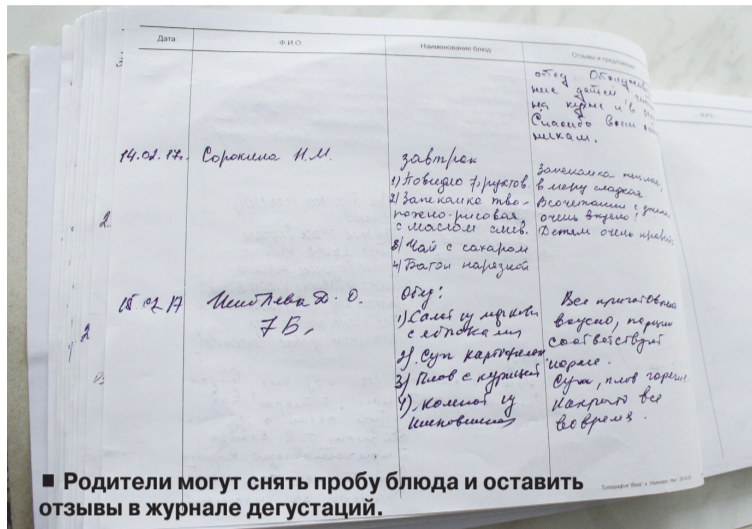 Дата Ф.И.О Наименование блюд Отзывы и предложения
обед.
ние детей
на кухне и в
Спасибо всем
никам.
14.02.17г. Сорокина Н.М. Завтрак
1) Повидло фруктов.
2) Запеканка тво-
рожено-рисовая
с маслом слив.
3) Чай с сахаром
4) Батон нарезной
Запеканка теплая,
в меру сладкая
В сочетании с
очень вкусно!
Детям очень
2.
15 02 17 Д. О.
7 Б,
Обед:
1) Салат из моркови
с яблоками
2). Суп картофельн
3) Плов с курицей
4). Компот из
Все приготовлено
вкусно, порции
соответствуют
норме.
Супы, плов горячие
Накрыто все
вовремя.
2
Ф.И.О.
■ Родители могут снять пробу блюда и оставить
отзывы в журнале дегустаций.